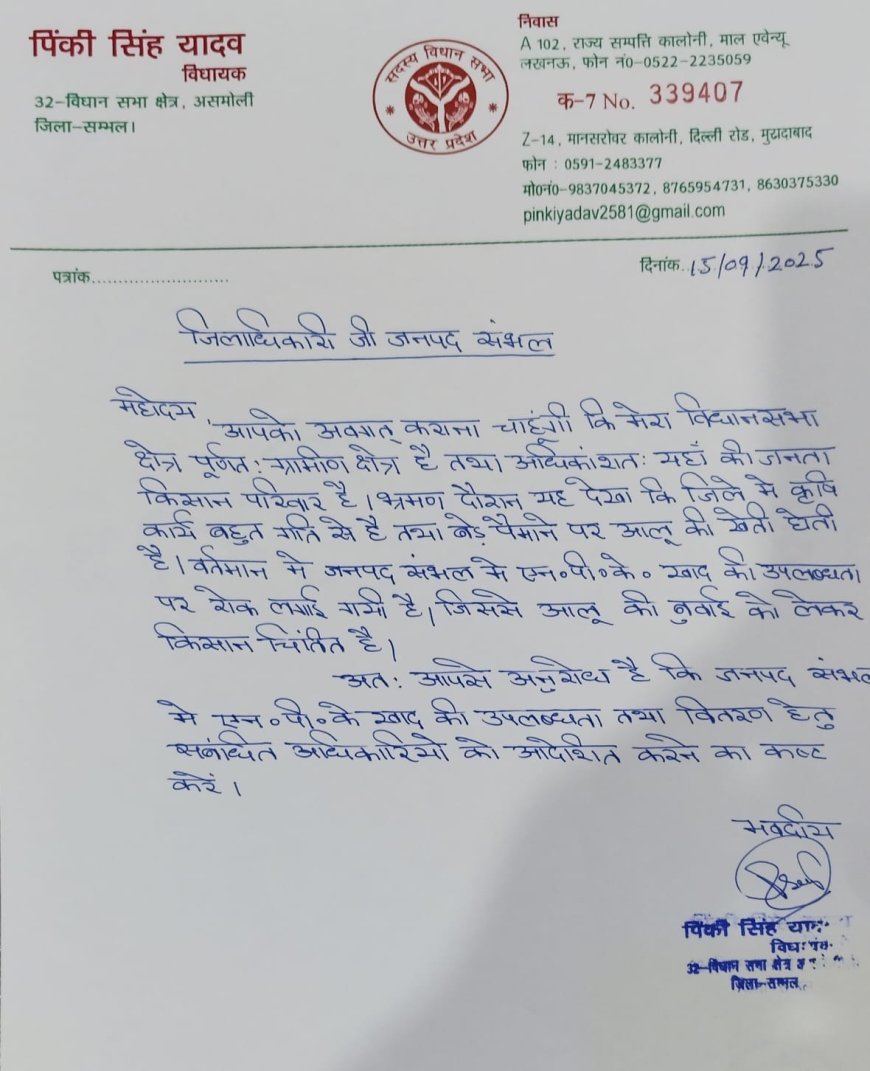 पिंकी सिंह यादव
विधायक
32-विधान सभा क्षेत्र, असमोली
जिला-सम्भल।
सदस्य विधान सभा
उत्तर प्रदेश
निवास
A 102, राज्य सम्पत्ति कालोनी, माल एवेन्यू
लखनऊ, फोन नं0-0522-2235059
क-7 No. 339407
Z-14, मानसरोवर कालोनी, दिल्ली रोड, मुरादाबाद
फोन : 0591-2483377
मो0नं0-9837045372, 8765954731, 8630375330
pinkiyadav2581@gmail.com
पत्रांक............................
दिनांक. 15/09/2025
जिलाधिकारी जी जनपद संभल
महोदय,
आपको अवगत् कराना चाहूंगी कि मेरा विधानसभा
क्षेत्र पूर्णत: ग्रामीण क्षेत्र है तथा अधिकांशत: यहाँ की जनता
किसान परिवार है। भ्रमण दौरान यह देखा कि जिले मे कृषि
कार्य बहुत गति से है तथा बड़े पैमाने पर आलू की खेती होती
है। वर्तमान मे जनपद संभल मे एन०पी०के० खाद की उपलब्धता
पर रोक लगाई गयी है। जिससे आलू की बुवाई को लेकर
किसान चिंतित है।
अत: आपसे अनुरोध है कि जनपद संभल
मे एन०पी०के खाद की उपलब्धता तथा वितरण हेतु
सबंधित अधिकारियो को आदेशित करने का कष्ट
करें।
भवदीय
पिंकी सिंह
32-विधान सभा क्षेत्र
जिला-सम्भल